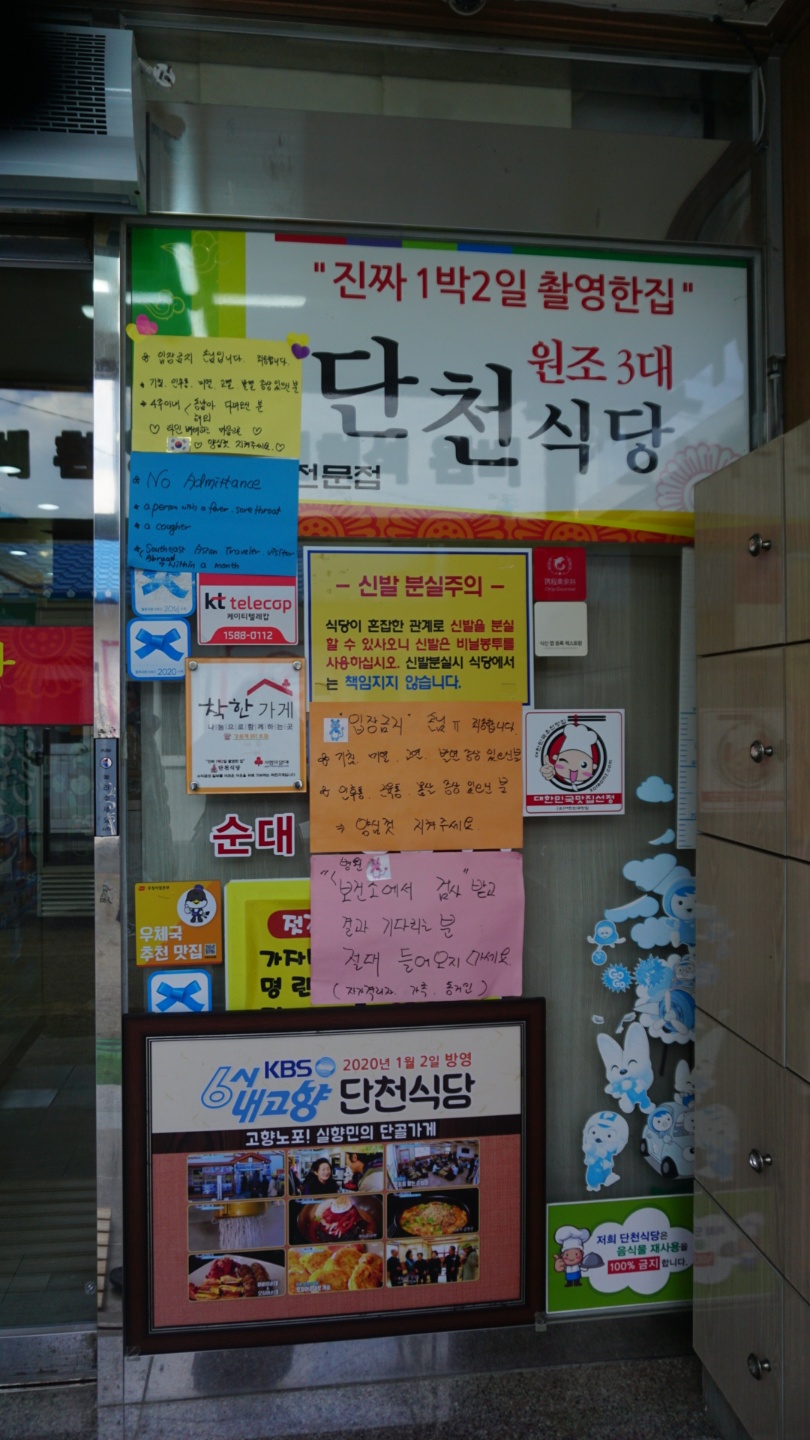 "진짜 1박2일 촬영한집"
원조 3대
단천식당
전문점
※ 입장금지 손님입니다. 죄송합니다.
* 기침, 인후통, 미열, 고열, 발열 증상 있으신 분
* 4주이내 해외
다녀오신 분
양심껏 지켜주세요.
* No Admittance
* a person with a fever, sore throat
* a cougher
* Southeast Asian Traveler, visiter
Abroad
within a month
2014
kt telecop
케이티텔레캅
1588-0112
2020
착한 가게
나눔으로함께하는곳
단천식당
순대
우체국
추천 맛집
- 신발 분실주의 -
식당이 혼잡한 관계로 신발을 분실
할 수 있사오니 신발은 비닐봉투를
사용하십시오. 신발분실시 식당에서
는 책임지지 않습니다.
"입장금지" 손님 ㅠ 죄송합니다
※ 기침, 미열, 고열, 발열 증상 있으신분
※ 인후통, 근육통, 몸살 증상 있으신 분
→ 양심껏 지켜주세요
병원
"보건소에서 검사" 받고
결과 기다리는 분
절대 들어오지 마세요
(자가격리자, 가족, 동거인)
젓
가자
명란
대한민국맛집선정
6시 내고향
KBS
2020년 1월 2일 방영
단천식당
고향노포! 실향민의 단골가게
저희 단천식당은
음식물 재사용을
100% 금지 합니다.